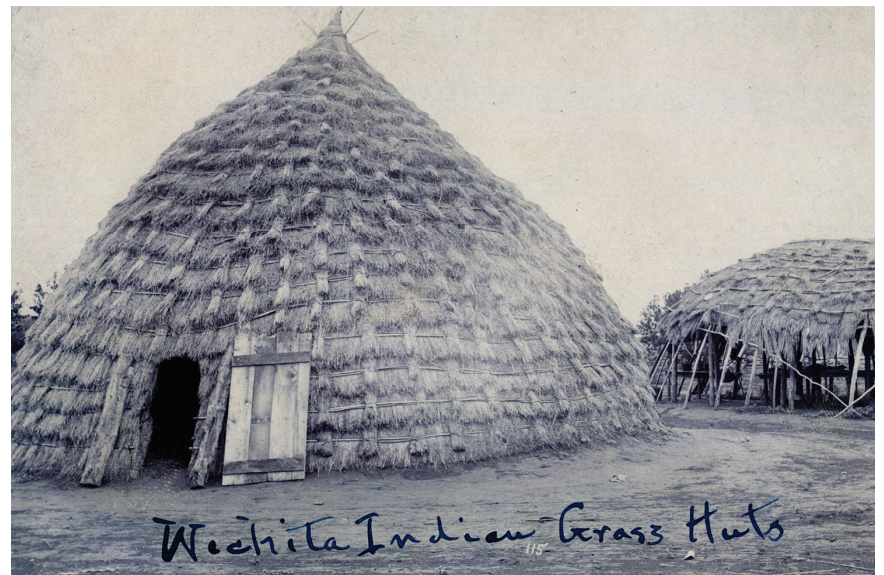 Wichita Indian Grass Huts
115